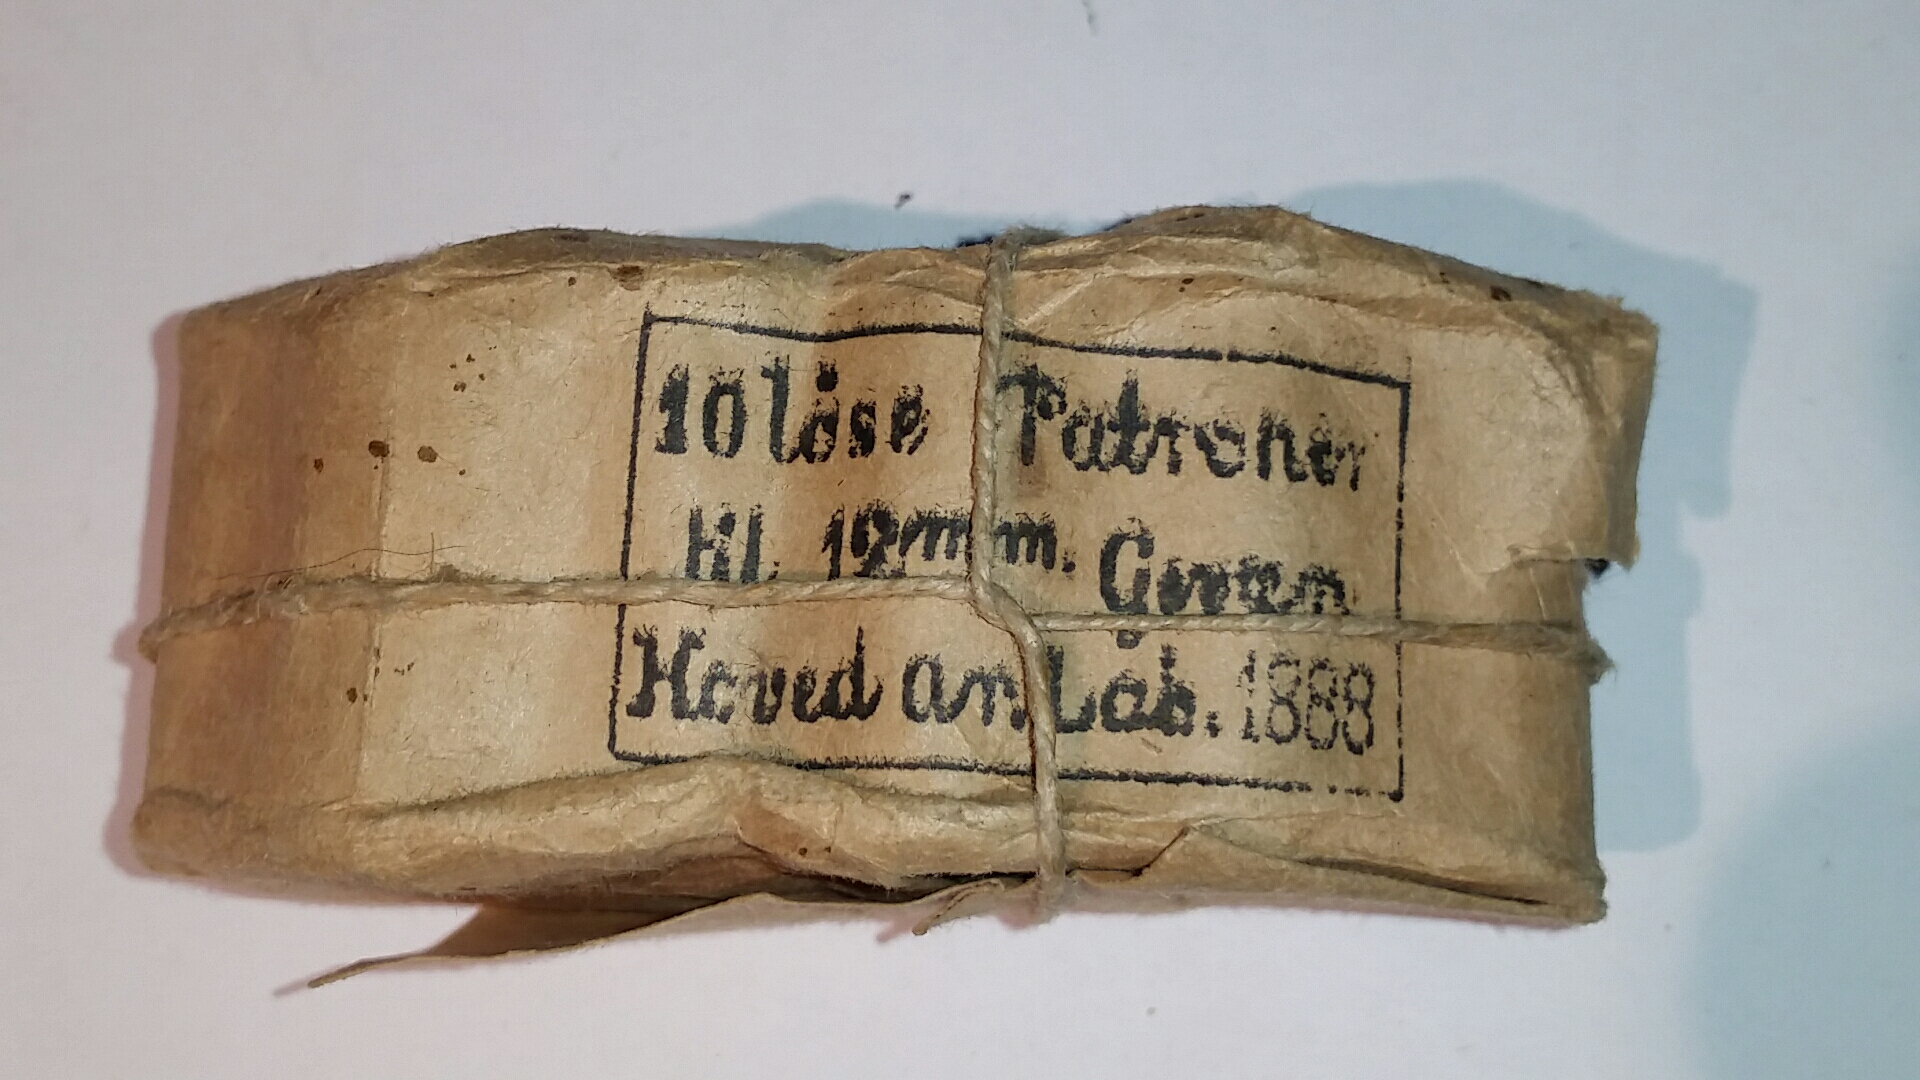 10 löse Patroner
til 12mm. Gevær
Hoved Ar. Lab. 1888